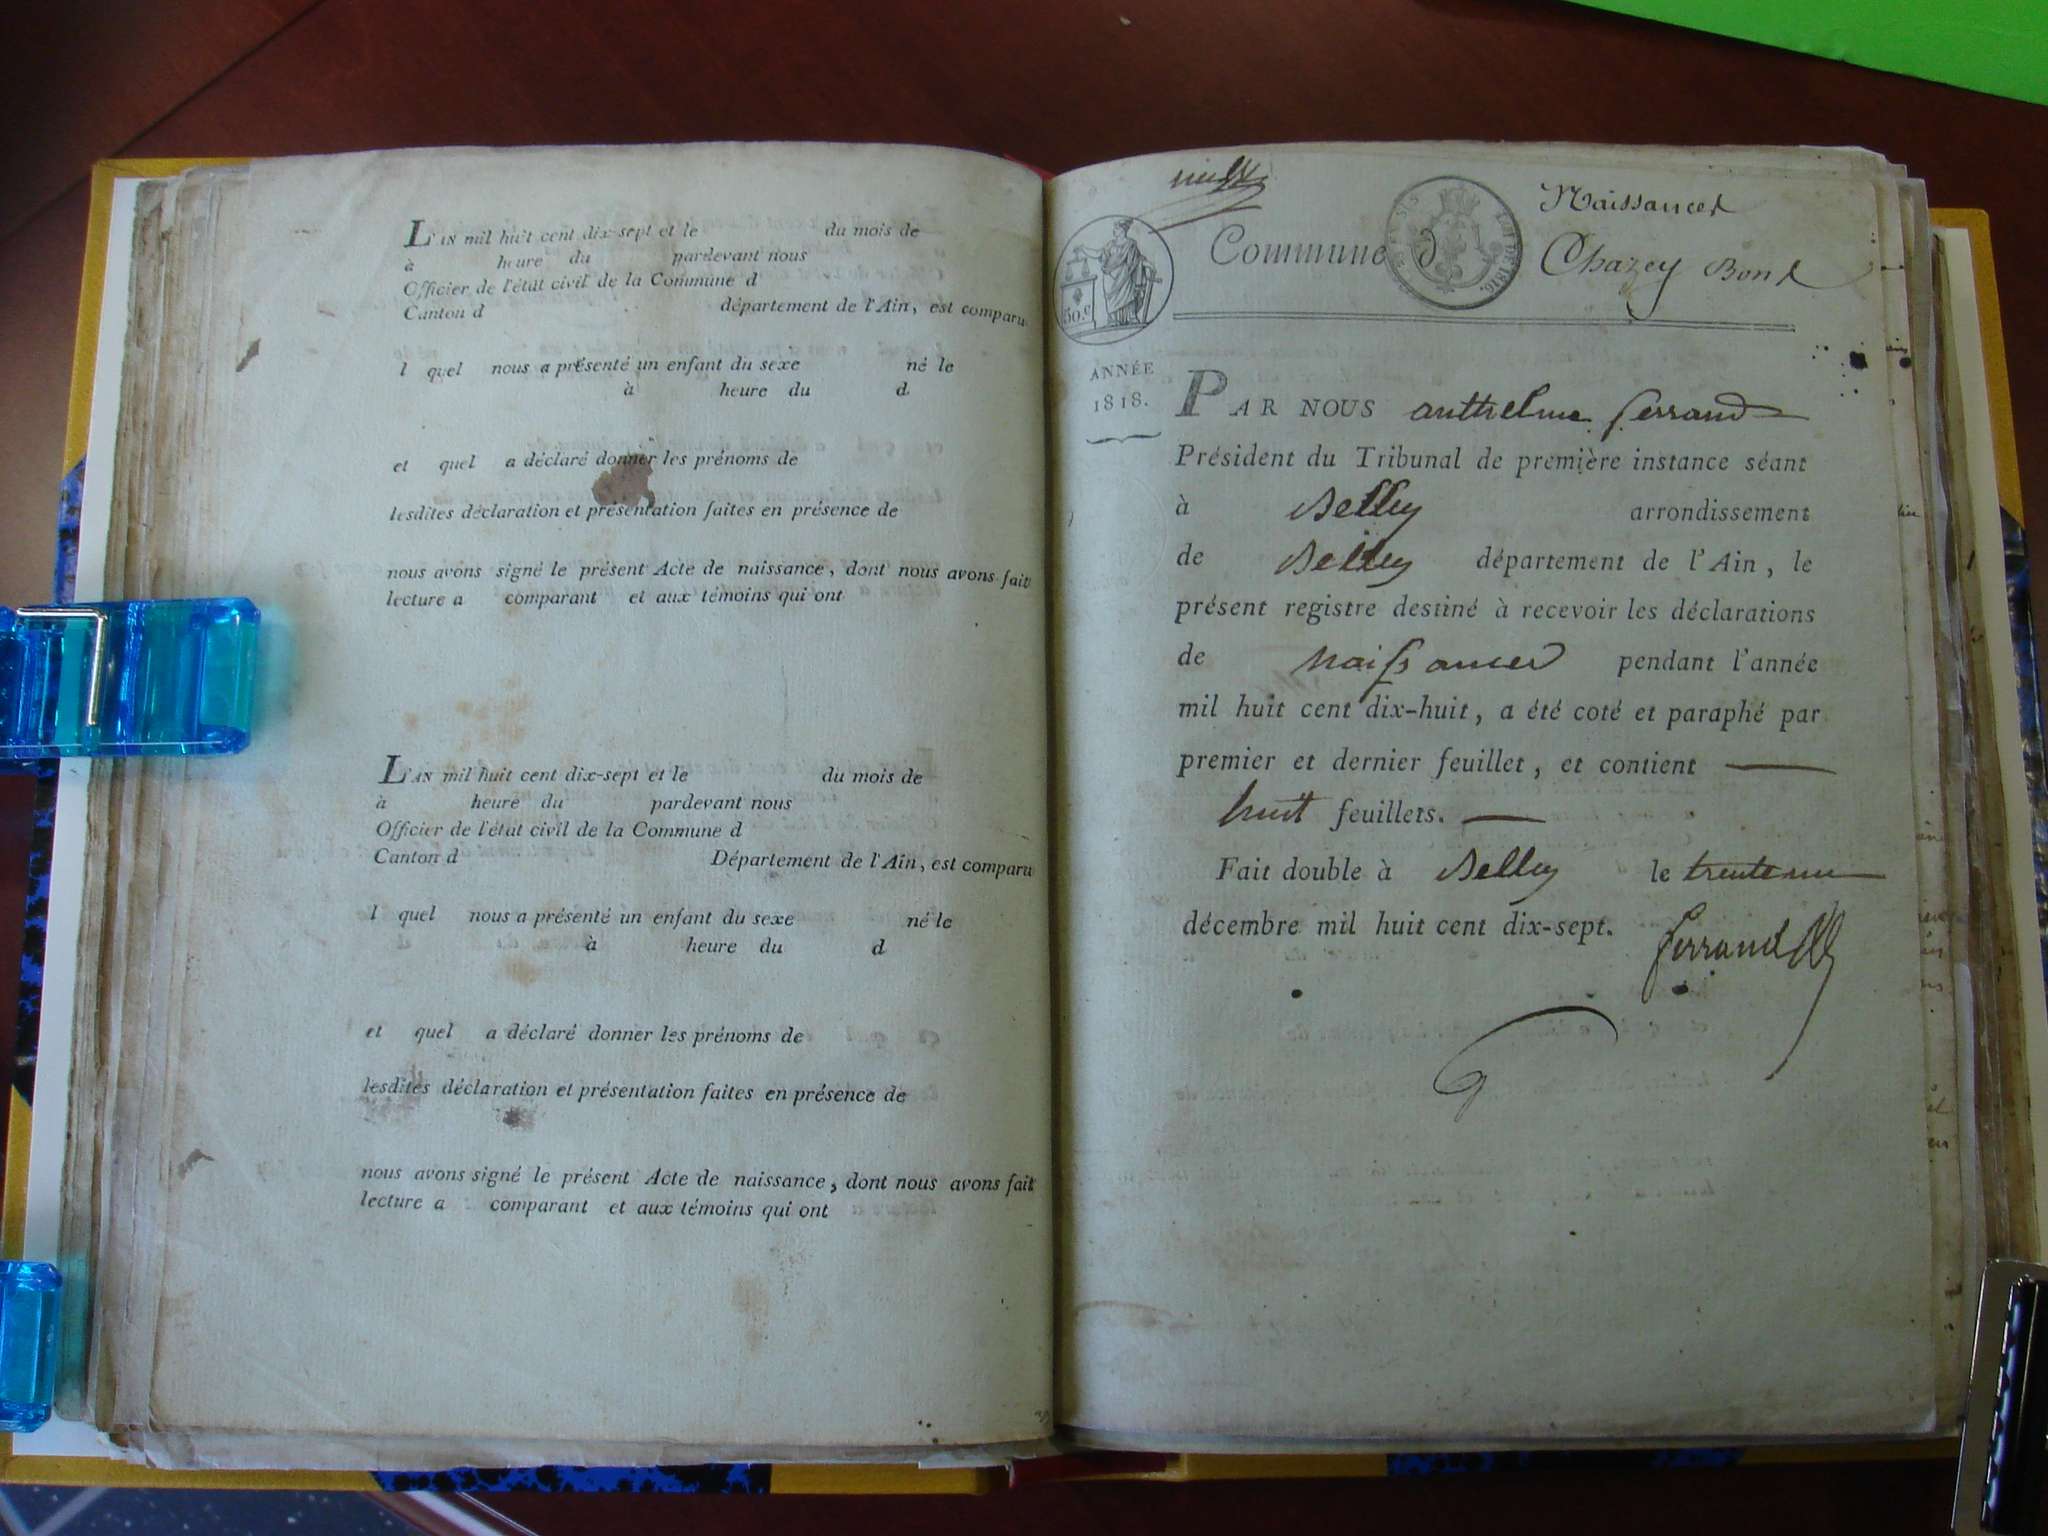 L'AN mil huit cent dix-sept et le du mois de
à heure du pardevant nous
Officier de l'état civil de la Commune d
Canton d département de l'Ain, est comparu
l quel nous a présenté un enfant du sexe né le
à heure du d
et quel a déclaré donner les prénoms de
lesdites déclaration et présentation faites en présence de
nous avons signé le présent Acte de naissance, dont nous avons fait
lecture a comparant et aux témoins qui ont
L'AN mil huit cent dix-sept et le du mois de
à heure du pardevant nous
Officier de l'état civil de la Commune d
Canton d Département de l'Ain, est comparu
l quel nous a présenté un enfant du sexe né le
à heure du d
et quel a déclaré donner les prénoms de
lesdites déclaration et présentation faites en présence de
nous avons signé le présent Acte de naissance, dont nous avons fait
lecture a comparant et aux témoins qui ont
Naissances
Commune d Chazey Bons
50.c
ANNÉE
1818.
PAR NOUS anthelme ferrand
Président du Tribunal de première instance séant
à Belley arrondissement
de Belley département de l'Ain, le
présent registre destiné à recevoir les déclarations
de naissances pendant l'année
mil huit cent dix-huit, a été coté et paraphé par
premier et dernier feuillet, et contient
huit feuillets.
Fait double à Belley le trente un
décembre mil huit cent dix-sept.
ferrand